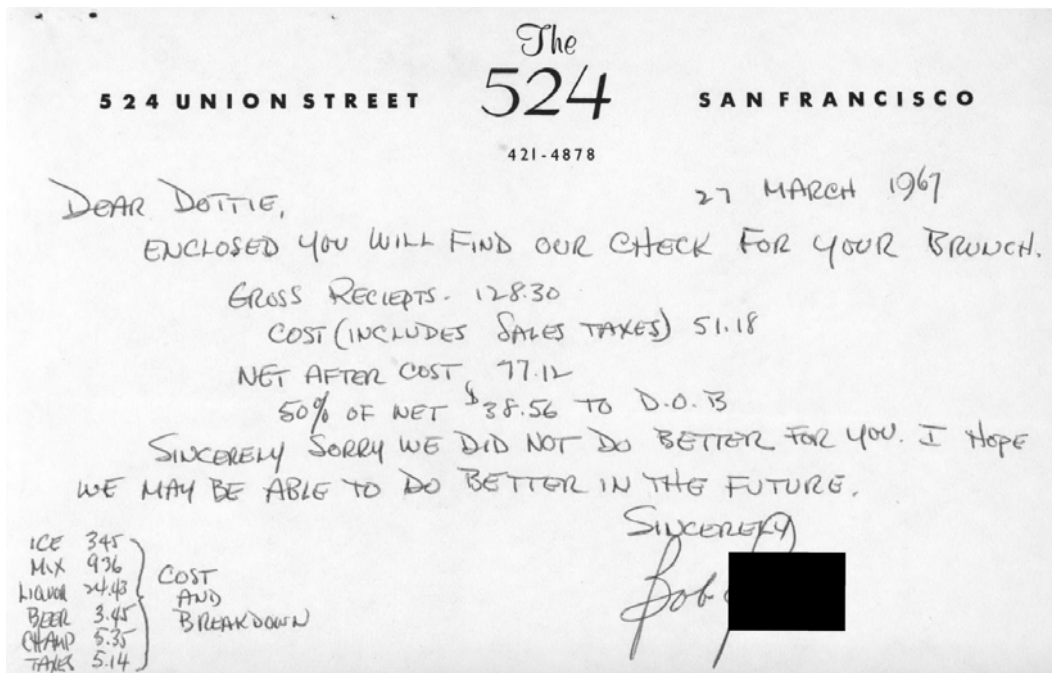 The
524
524 UNION STREET
SAN FRANCISCO
421-4878
27 MARCH 1967
DEAR DOTTIE,
ENCLOSED YOU WILL FIND OUR CHECK FOR YOUR BRUNCH.
GROSS RECIEPTS. 128.30
COST (INCLUDES SALES TAXES) 51.18
NET AFTER COST 77.12
50% OF NET $38.56 TO D.O.B
SINCERELY SORRY WE DID NOT DO BETTER FOR YOU. I HOPE
WE MAY BE ABLE TO DO BETTER IN THE FUTURE.
SINCERELY
Bob
ICE 345
MIX 936
LIQUOR 24.43
BEER 3.45
CHAMP 5.35
TAXES 5.14
COST
AND
BREAKDOWN